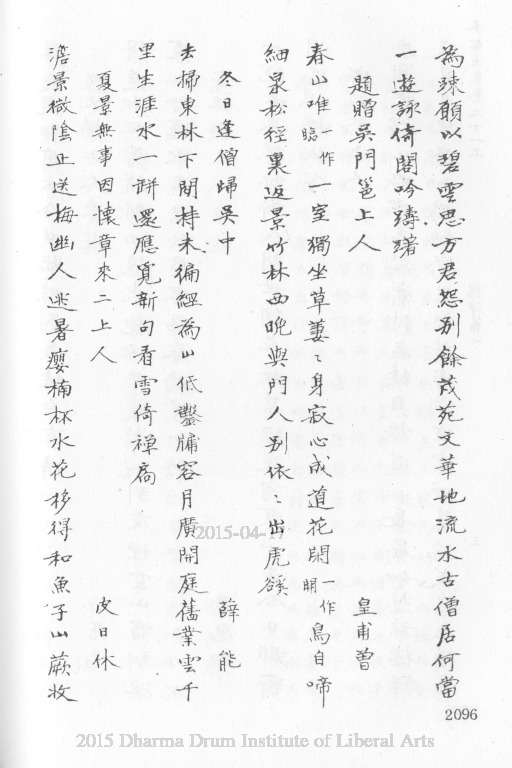 為疎願以碧雲思方君怨別餘茂苑文華地流水古僧居何當
一遊詠倚閣吟躊躇
題贈吳門邕上人 皇甫曾
春山唯臨一作一室獨坐草萋〻身寂心成道花閑明一作鳥自啼
細泉松徑裏返景竹林西晚與門人別依〻出虎谿
冬日逢僧歸吳中 薛能
去掃東林下閑持未徧經為山低鑿牖容月廣開庭舊業雲千
里生涯水一缾還應覓新句看雪倚禪扃
夏景無事因懷章來二上人 皮日休
澹景微陰正送梅幽人逃暑癭楠杯水花移得和魚子山蕨收
2096
2015-04-17
2015 Dharma Drum Institute of Liberal Arts